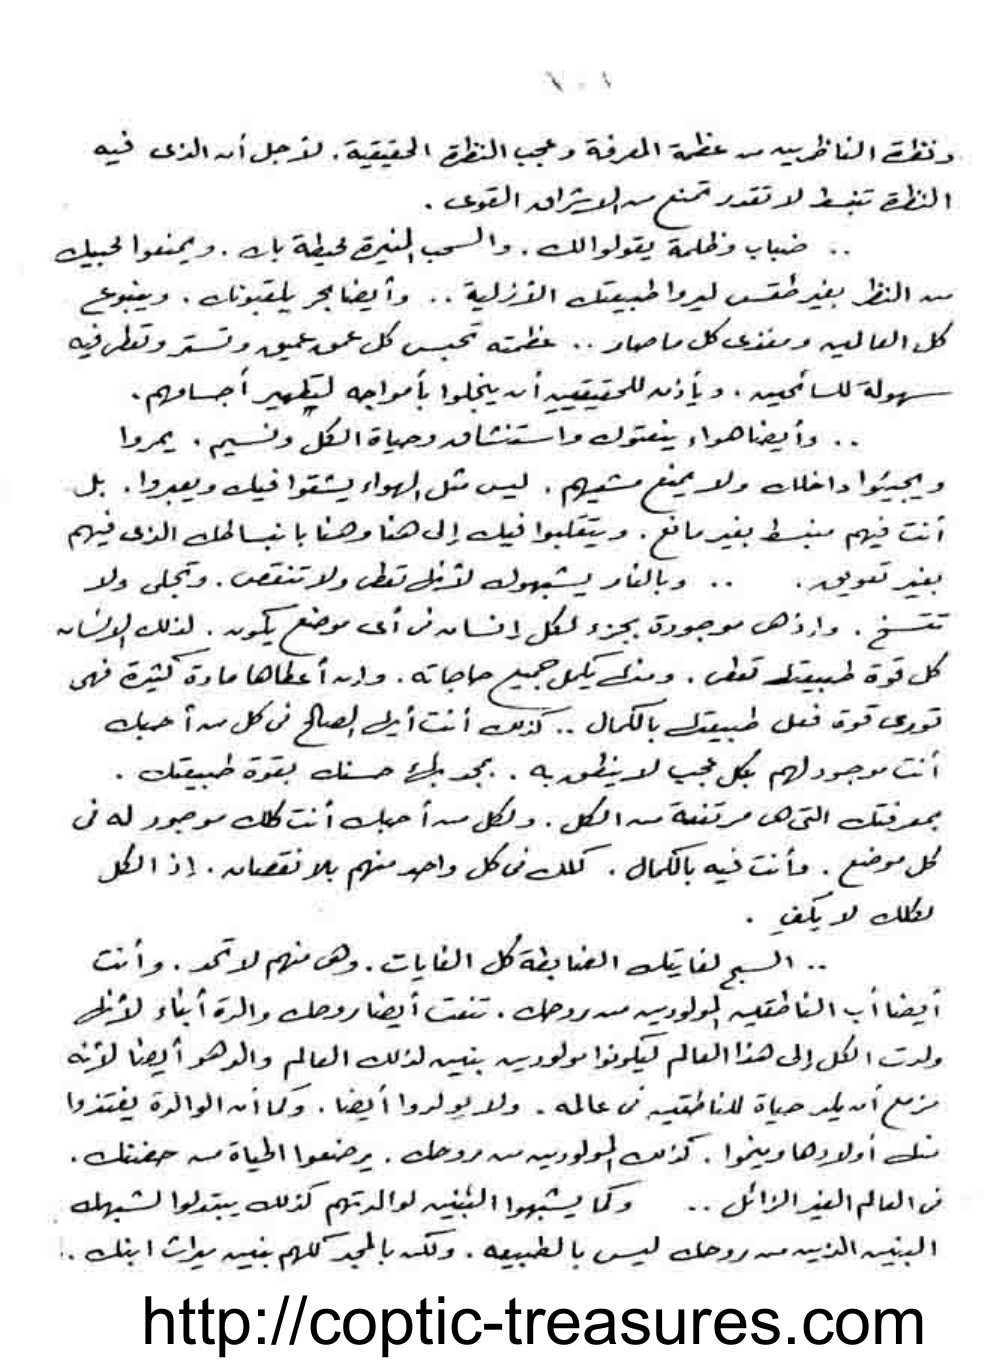 ونظرة الناظرين من عظمة المعرفة وعجب النظرة الحقيقية. لأجل أن الذى فيه
النظرة تنبسط لا تقدر تمنع من الاشراق القوى.
.. ضباب وظلمة يقولوا لك. والسحب المنيرة محيطة بك. ويمنعوا محبيك
من النظر بغير طقس ليروا طبيعتك الأزلية .. وأيضا بحر يلقبونك. وينبوع
كل العالمين ومغذى كل ما صار .. عظمته تحبس كل عمق عميق وتستر وتعطى فيه
سهولة للسائحين. ويأذن للحقيقيين أن ينجلوا بأمواجه لتطهير أجسامهم.
.. وأيضا هواء ينعتوك واستنشاق وحياة الكل ونسيم. يمروا
ويجيئوا داخلك ولا يمنع مشيهم. ليس مثل الهواء يشقوا فيك ويعبروا. بل
أنت فيهم منبسط بغير مانع. ويتقلبوا فيك إلى هنا وهنا بانبساطك الذى فيهم
بغير تعويق. .. وبالنار يشبهوك لأنك تعطى ولا تنقص. وتجلى ولا
تتسخ. وإذ هى موجودة بجزء لكل إنسان فى أى موضع يكون. لذلك الإنسان
كل قوة طبيعتك تعطى. ومنك يكمل جميع حاجاته. وإن أعطاها مادة كثيرة فهى
تورى قوة فعل طبيعتك بالكمال .. كذلك أنت أيها الصالح فى كل من أحبك
أنت موجود لهم بكل عجب لا ينطق به. بمجد بهاء حسنك بقوة طبيعتك.
بمعرفتك التى هى مرتفعة من الكل. ولكل من أحبك أنت كلك موجود له فى
كل موضع. وأنت فيه بالكمال. كلك فى كل واحد منهم بلا نقصان. إذ الكل
لكلك لا يكفى.
.. السبح لغايتك الضابطة كل الغايات. وهى منهم لا تحد. وأنت
أيضا أب الناطقين المولودين من روحك. تنعت أيضا روحك والدة أبناء لأنك
ولدت الكل إلى هذا العالم ليكونوا مولودين بنين لذلك العالم والدهو أيضا لأنه
مزمع أن يلد حياة للناطقين فى عالمه. ولا يولدوا أيضا. وكما أن الوالدة يغتذوا
منك أولادها وينموا. كذلك المولودين من روحك. يرضعوا الحياة من حضنك.
فى العالم الغير الزائل .. وكما يشبهوا البنين لوالدتهم كذلك يبتدلوا لشبهك
البنين الذين من روحك ليس بالطبيعه. ولكن بالمجد كلهم بنين ميراث ابنك ..
http://coptic-treasures.com